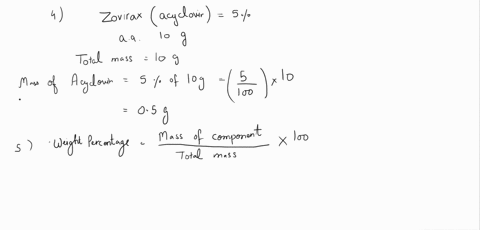 4) Zovirax (acyclovir) = 5 %
a.a. 10 g
Total mass = 10 g
Mass of Acyclovir = 5 % of 10g = (5/100) × 10
= 0.5 g
5) Weight Percentage = Mass of component / Total mass × 100